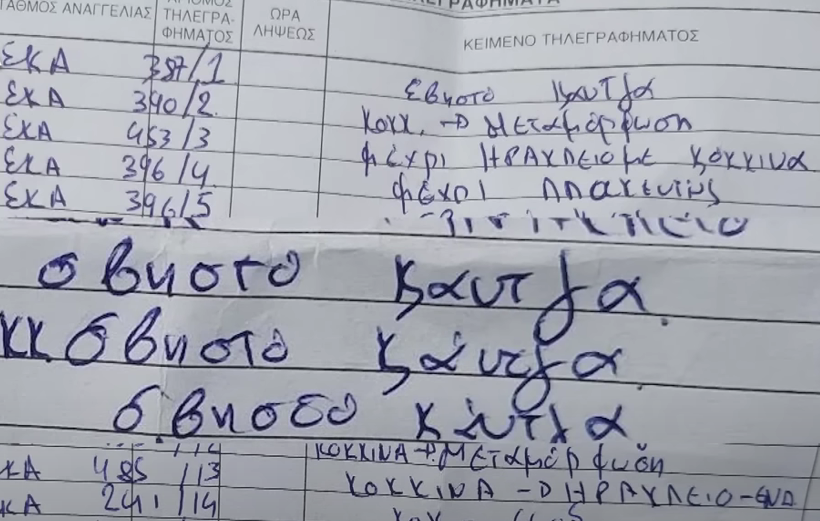 ΤΑΘΜΟΣ ΑΝΑΓΓΕΛΙΑΣ ΤΗΛΕΓΡΑ-ΦΗΜΑΤΟΣ ΩΡΑ ΛΗΨΕΩΣ ΚΕΙΜΕΝΟ ΤΗΛΕΓΡΑΦΗΜΑΤΟΣ
ΣΚΑ 387/1 Σβηστο καντζα
ΣΚΑ 390/2 Κοκκ. → Μεταμόρφωση
ΣΚΑ 453/3 φέχρι ΗΡΑΚΛΕΙΟ με κοκκινα
ΣΚΑ 396/4 φέχρι
ΣΚΑ 396/5
σβηστο Καντζα
κκ σβηστό κάντζα
σβησσο κάντζα
ΚΟΚΚΙΝΑ → Μεταμόρφωση
ΚΑ 485 /13
ΚΑ 241 /14 ΚΟΚΚΙΝΑ → ΗΡΑΚΛΕΙΟ-ΕΝΑ